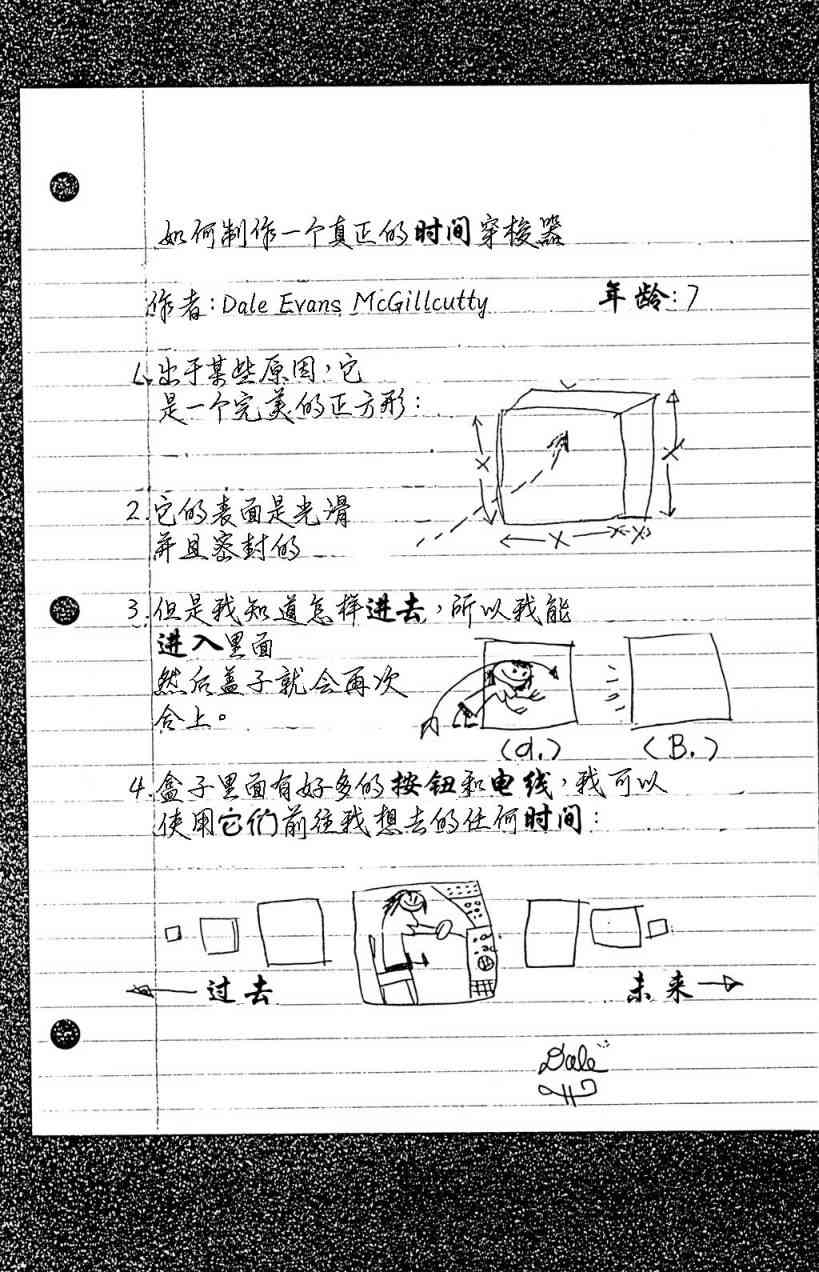 如何制作一个真正的时间穿梭器
作者:Dale Evans McGillcutty 年龄:7
1.出于某些原因,它
是一个完美的正方形:
X
X
X
X
2.它的表面是光滑
并且密封的
3.但是我知道怎样进去,所以我能
进入里面
然后盖子就会再次
合上。
(a.) (B.)
4.盒子里面有好多的按钮和电线,我可以
使用它们前往我想去的任何时间:
过去 未来
Dale